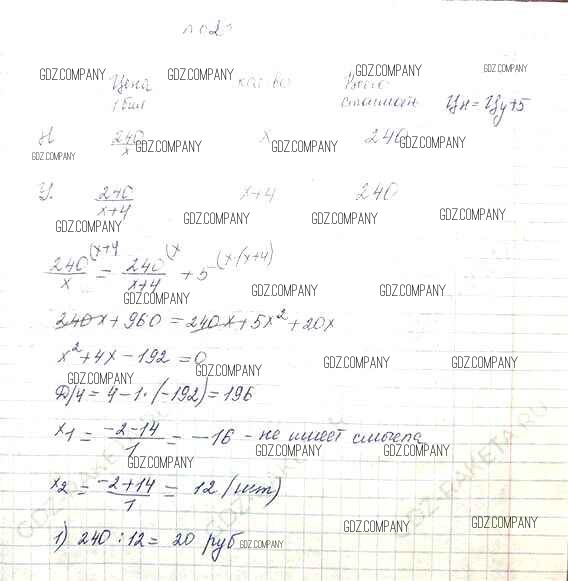 GDZ.COMPANY GDZ.COMPANY GDZ.COMPANY GDZ.COMPANY
Цена кол-во Всего
1 бил стоимость Цн = Цу+5
Н 240/x x 240
GDZ.COMPANY GDZ.COMPANY GDZ.COMPANY
У. 240/x+4 x+4 240
GDZ.COMPANY GDZ.COMPANY GDZ.COMPANY GDZ.COMPANY
240/x (x+4 = 240/x+4 (x + 5 (x·(x+4)
GDZ.COMPANY GDZ.COMPANY GDZ.COMPANY
240x + 960 = 240x + 5x² + 20x
x² + 4x - 192 = 0
GDZ.COMPANY GDZ.COMPANY GDZ.COMPANY GDZ.COMPANY
Д/4 = 4 - 1·(-192) = 196
x₁ = -2-14/1 = -16 - не имеет смысла
GDZ.COMPANY GDZ.COMPANY GDZ.COMPANY
x₂ = -2+14/1 = 12 (шт)
GDZ.COMPANY GDZ.COMPANY
1) 240 : 12 = 20 руб
GDZ.COMPANY
GDZ-RAKETA.RU GDZ-RAKETA.RU